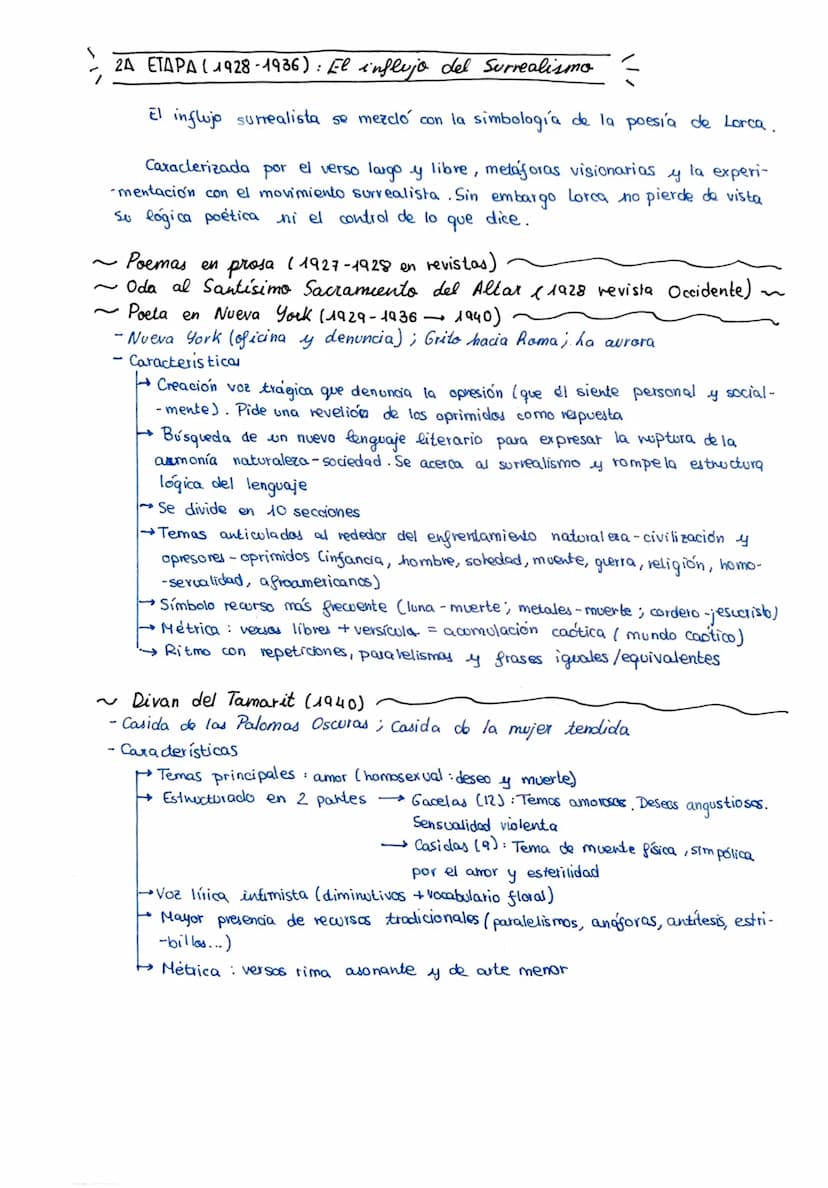 2A ETAPA (1928-1936): El influjo del Surrealismo
El influjo surrealista se mezcló con la simbología de la poesía de Lorca.
Caracterizada por el verso largo y libre, metáforas visionarias y la experi-
-mentación con el movimiento surrealista. Sin embargo Lorca no pierde de vista
su lógica poética ni el control de lo que dice.
~ Poemas en prosa (1927-1928 en revistas)
~ Oda al Santísimo Sacramento del Altar (1928 revista Occidente) ~
~ Poeta en Nueva York (1929-1936 → 1940)
- Nueva York (oficina y denuncia); Grito hacia Roma; La aurora
- Características
→ Creación voz trágica que denuncia la opresión (que él siente personal y social-
-mente). Pide una revelión de los oprimidos como respuesta
→ Búsqueda de un nuevo lenguaje literario para expresar la ruptura de la
armonía naturaleza-sociedad. Se acerca al surrealismo y rompe la estructura
lógica del lenguaje
→ Se divide en 10 secciones
→ Temas articulados al rededor del enfrentamiento naturaleza-civilización y
opresores-oprimidos (infancia, hombre, soledad, muerte, guerra, religión, homo-
-sexualidad, afroamericanos)
→ Símbolo recurso más frecuente (luna-muerte; metales-muerte; cordero-jesucristo)
→ Métrica: versos libres + versícula = acumulación caótica (mundo caótico)
→ Ritmo con repeticiones, paralelismos y frases iguales/equivalentes
~ Divan del Tamarit (1940)
- Casida de las Palomas Oscuras; Casida de la mujer tendida
- Características
→ Temas principales: amor (homosexual: deseo y muerte)
→ Estructurado en 2 partes → Gacelas (12): Temas amorosos. Deseos angustiosos.
Sensualidad violenta
→ Casidas (9): Tema de muerte física, simpólica
por el amor y esterilidad
→ Voz lírica intimista (diminutivos + vocabulario floral)
→ Mayor presencia de recursos tradicionales (paralelismos, anáforas, antítesis, estri-
-billos...)
→ Métrica: versos rima asonante y de arte menor